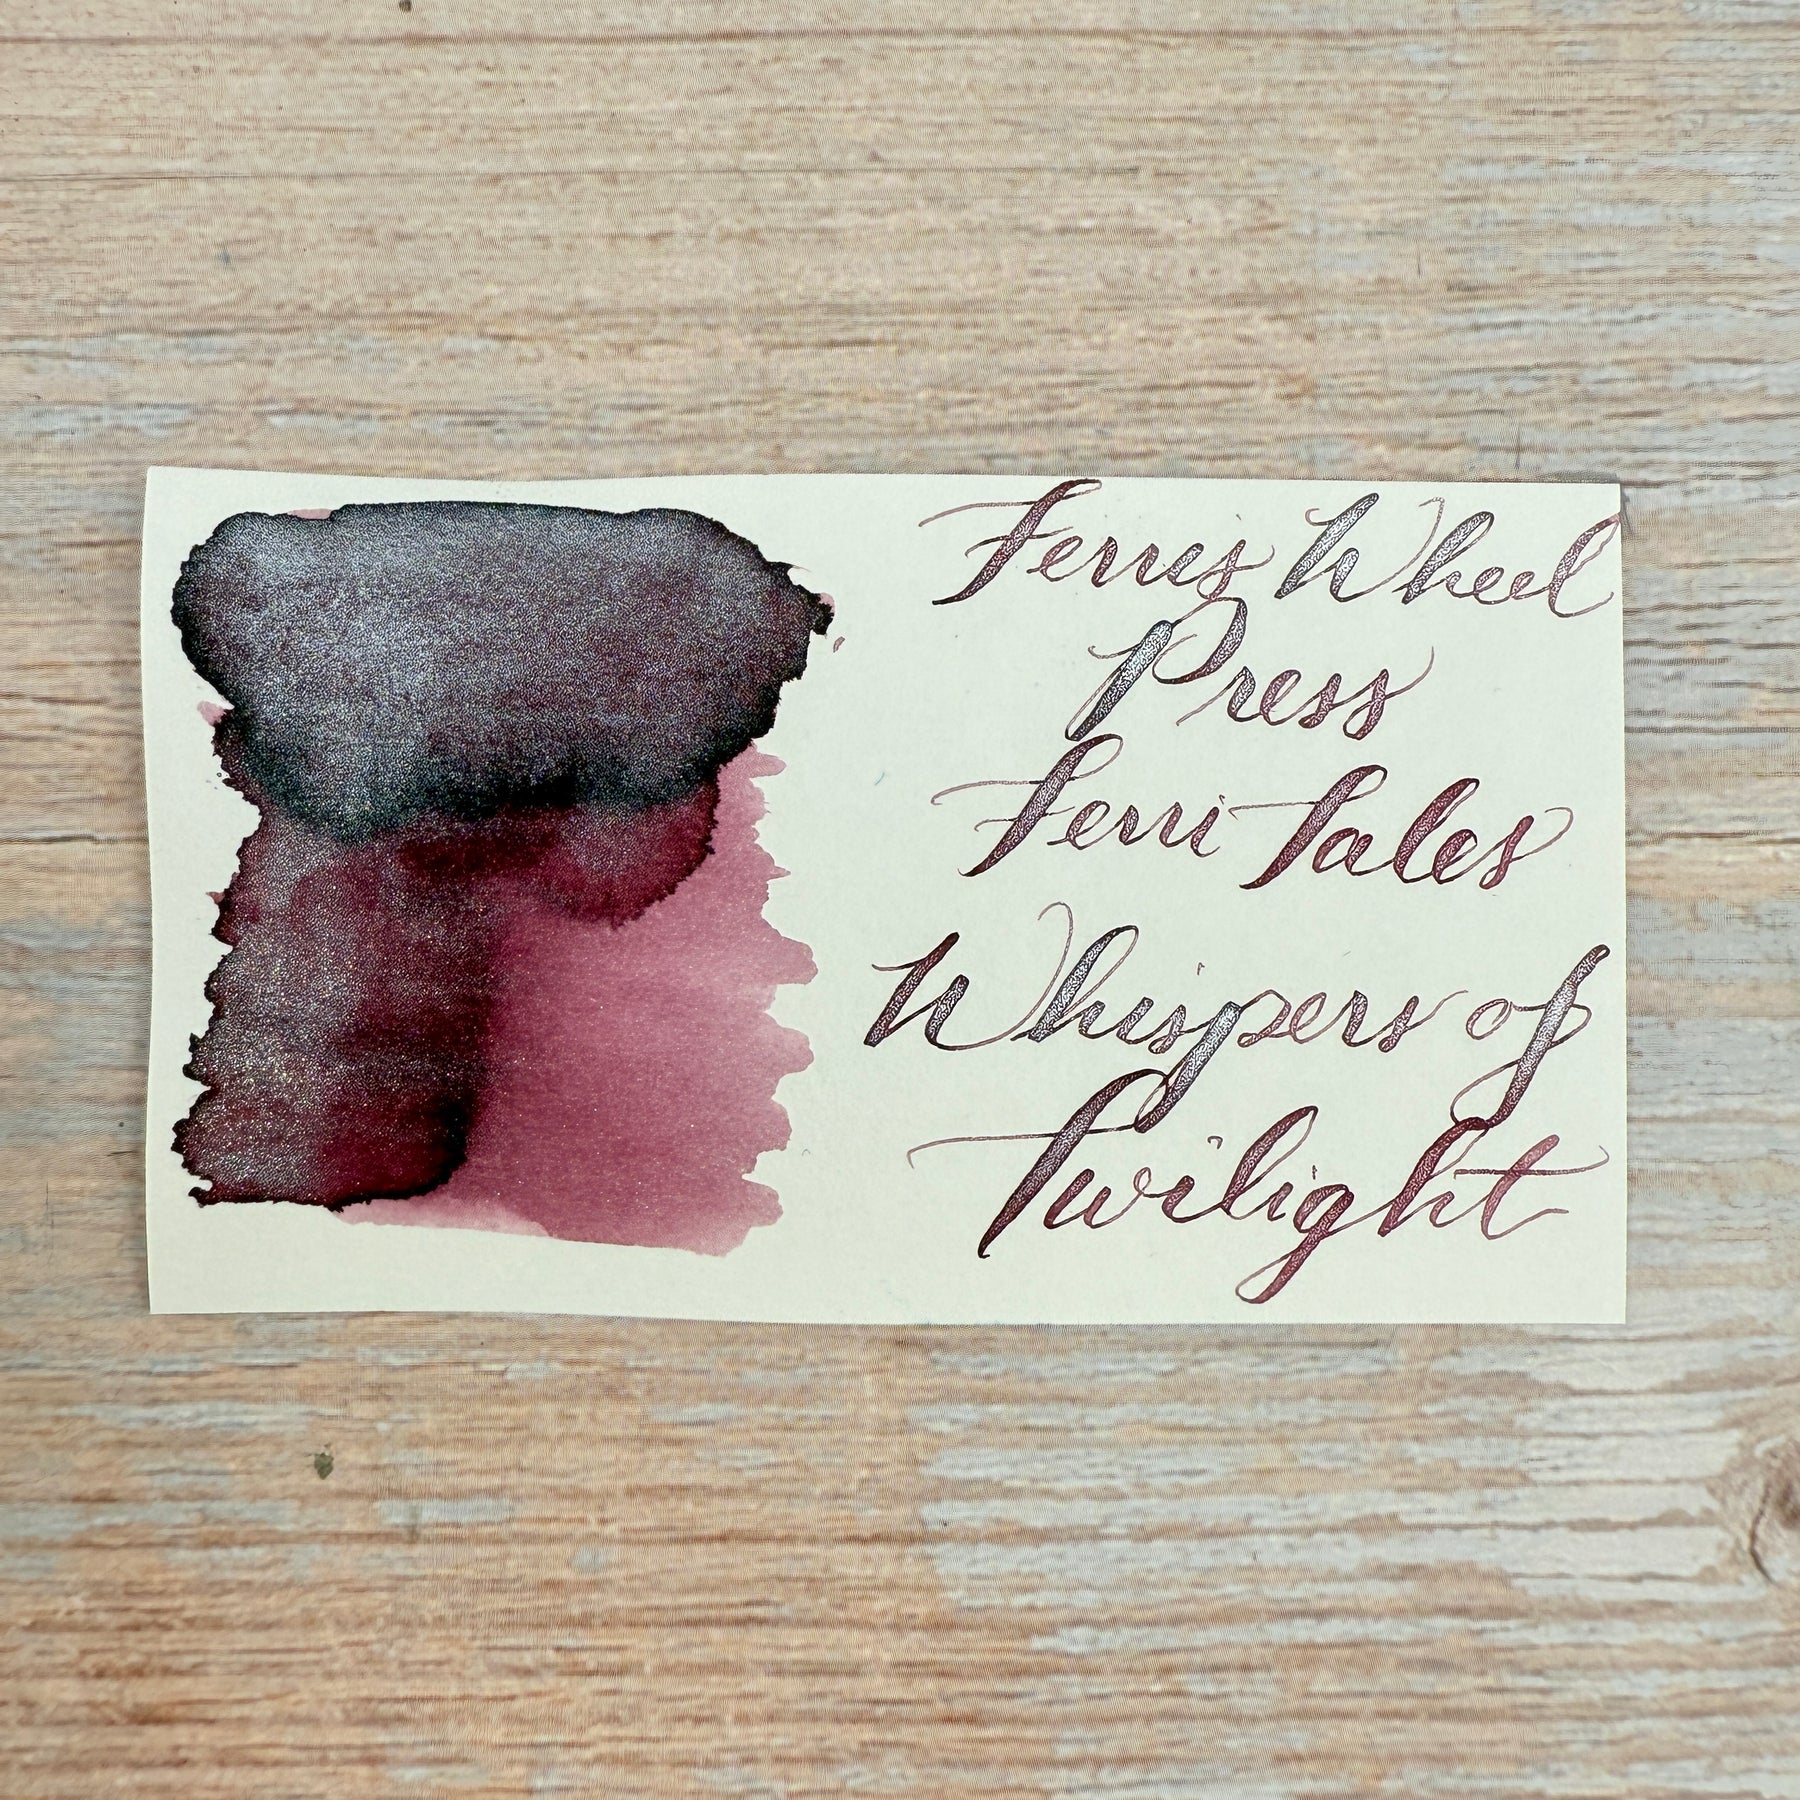 Ferris Wheel
Press
Ferri Tales
Whispers of
Twilight